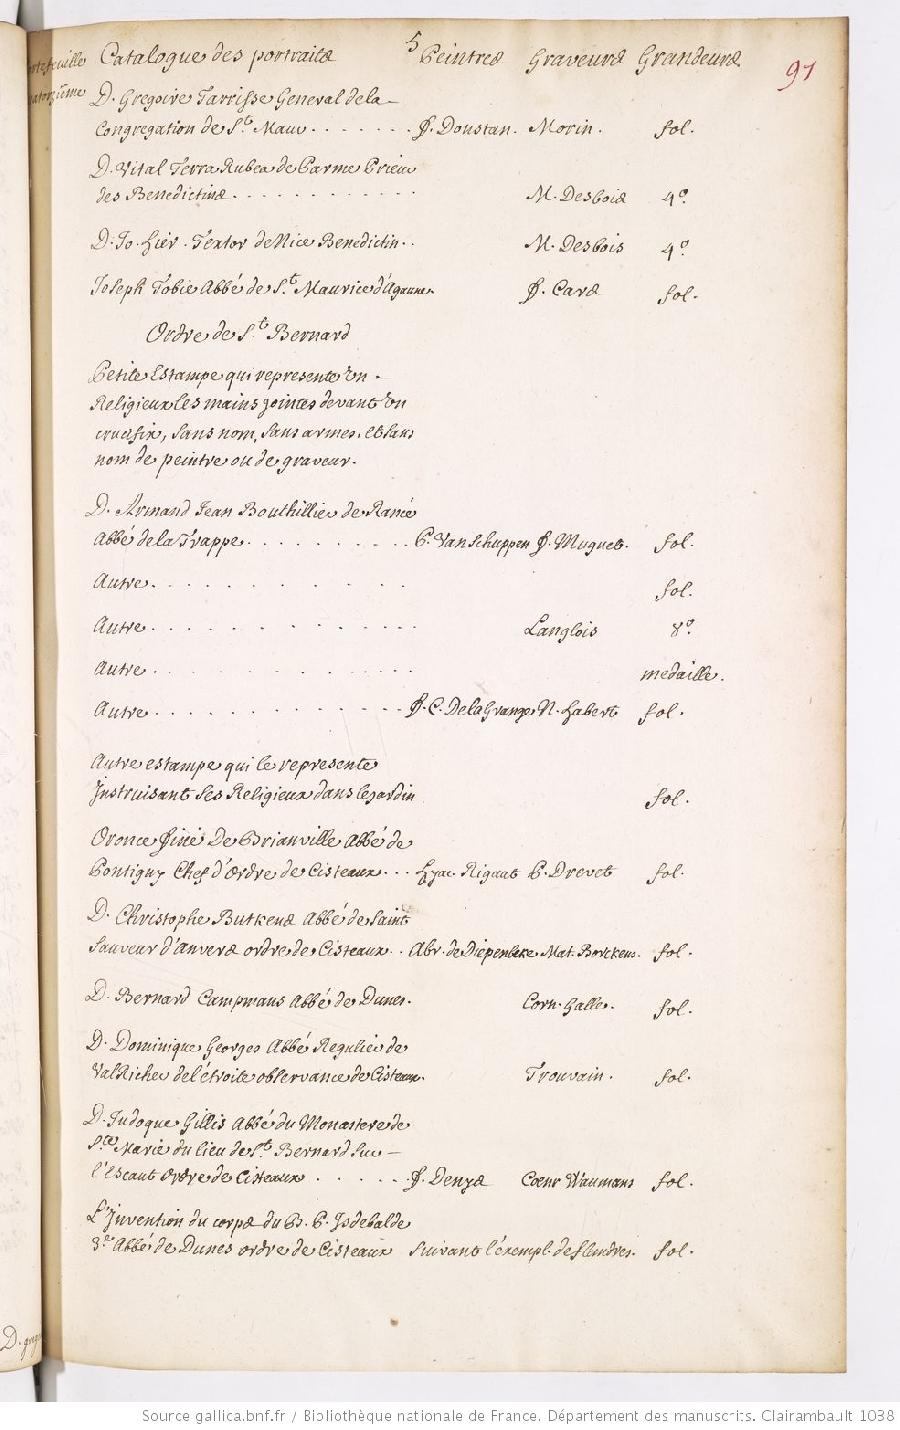 5
97
Portefeuille Catalogue des portraits Peintres Graveurs Grandeurs
quatorziéme
D. Gregoire Tarrisse General de la
Congregation de St. Maur . . . . . . . F. Doustan. Morin. fol.
D. Vital Terra Rubea de Parme Prieur
des Benedictins . . . . . . . . . . . . M. Desbois 4o.
D. Jo. Hier. Textor de Nice Benedictin . . M. Desbois 4o
Joseph Tobie Abbé de St. Maurice d'Agaune. F. Cars fol.
Ordre de St. Bernard
Petite Estampe qui represente Un
Religieux les mains jointes devant Un
crucifix, sans nom, sans armes, et sans
nom de peintre ou de graveur.
D. Armand Jean Bouthillier de Rancé
Abbé de la Trappe . . . . . . . . . . P. Van Schuppen F. Muguet. fol.
Autre . . . . . . . . . . . fol.
Autre . . . . . . . . . . . Langlois 8o.
Autre . . . . . . . . . . . medaille.
Autre . . . . . . . . . . . F. C. De la Grange N. Habert fol.
Autre estampe qui le represente
Instruisant ses Religieux dans le jardin fol.
Oronce Finé De Brianville Abbé de
Pontigny Chef d'Ordre de Cisteaux . . . Hyac. Rigaut P. Drevet fol.
D. Christophe Butkens Abbé de Saint
Sauveur d'anvers ordre de Cisteaux . . Abr. de Diepenbeke Mat. Borckens. fol.
D. Bernard Campmans Abbé de Dunes. Corn. Galle. fol.
D. Dominique Georges Abbé Regulier de
ValRicher de l'étroite observance de Cisteaux. Trouvain. fol.
D. Judoque Gillis Abbé du Monastere de
Ste. Marie du lieu de St. Bernard sur
l'Escaut Ordre de Cisteaux . . . . . . F. Denys Coenr Waumans fol.
L'Invention du corps du B. P. Isdebalde
3e Abbé de Dunes ordre de Cisteaux suivant l'exempl. de flandres. fol.
Source gallica.bnf.fr / Bibliothèque nationale de France. Département des manuscrits. Clairambault 1038